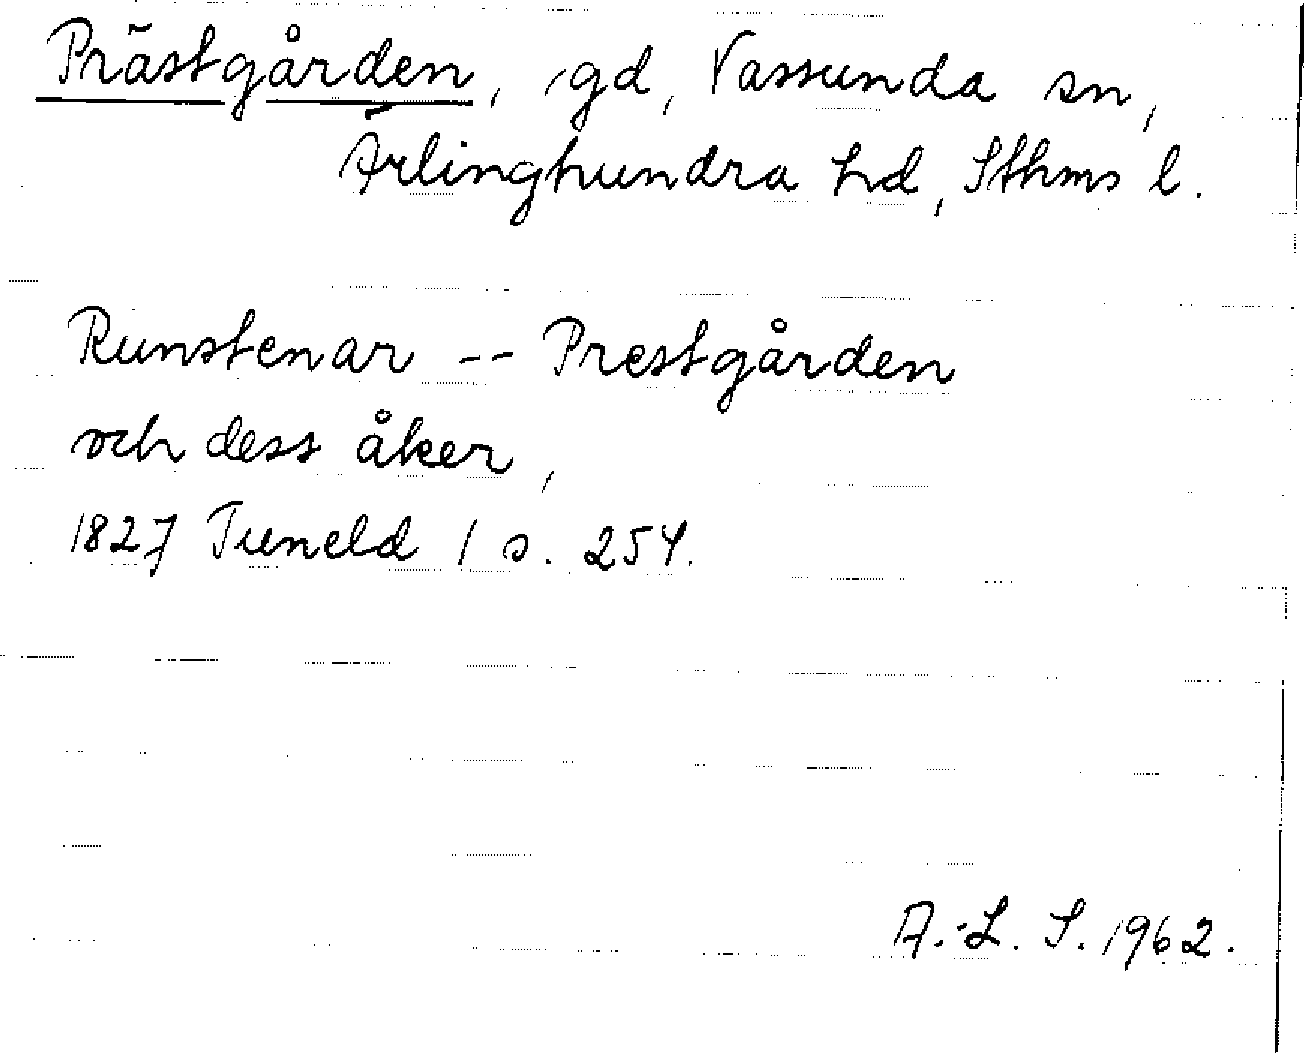 Prästgården, gd, Vassunda sn,
Ärlinghundra hd, Sthms l.
Runstenar -- Prestgården
och dess åker,
1827 Tuneld 1 s. 254.
A.-L. S. 1962.